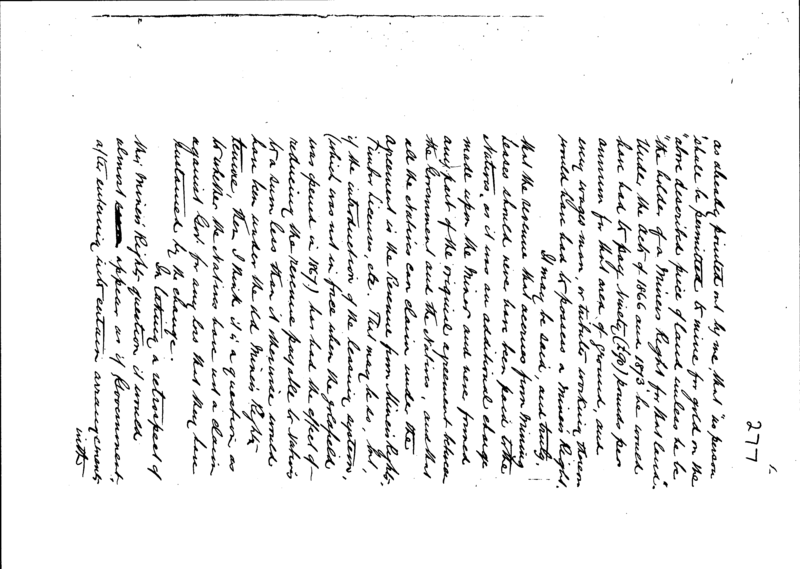 277
as already pointed out by me, that "no person
"shall be permitted to mine for gold on the
"above described piece of land unless he be
"the holder of a Miners Right for that land".
Under the Act of 1866 and 1873 he would
have had to pay Ninety (£90) pounds per
annum for that area of ground, and
every wages man, or tributer working thereon
would have had to possess a Miner's Right.
I may be said, and truly,
that the revenue that accrues from Mining
leases should never have been paid to the
Natives, as it was an additional charge
made upon the Miner and never formed
any part of the original agreement between
the Government and the Natives, and that
all the Natives can claim under the
agreement is the Revenue from Miners Rights,
Timber licences, etc. This may be so, but
if the introduction of the leasing system,
(which was not in force when the goldfield
was opened in 1867) has had the effect of
reducing the revenue payable to Natives
to a sum less than it otherwise would
have been under the old Miners Rights
tenure, then I think it is a question as
to whether the Natives have not a claim
against Govt. for any loss that they have
sustained by the change.
In taking a retrospect of
this Miners Rights question it would
almost appear as if Government,
after entering into certain arrangements
with